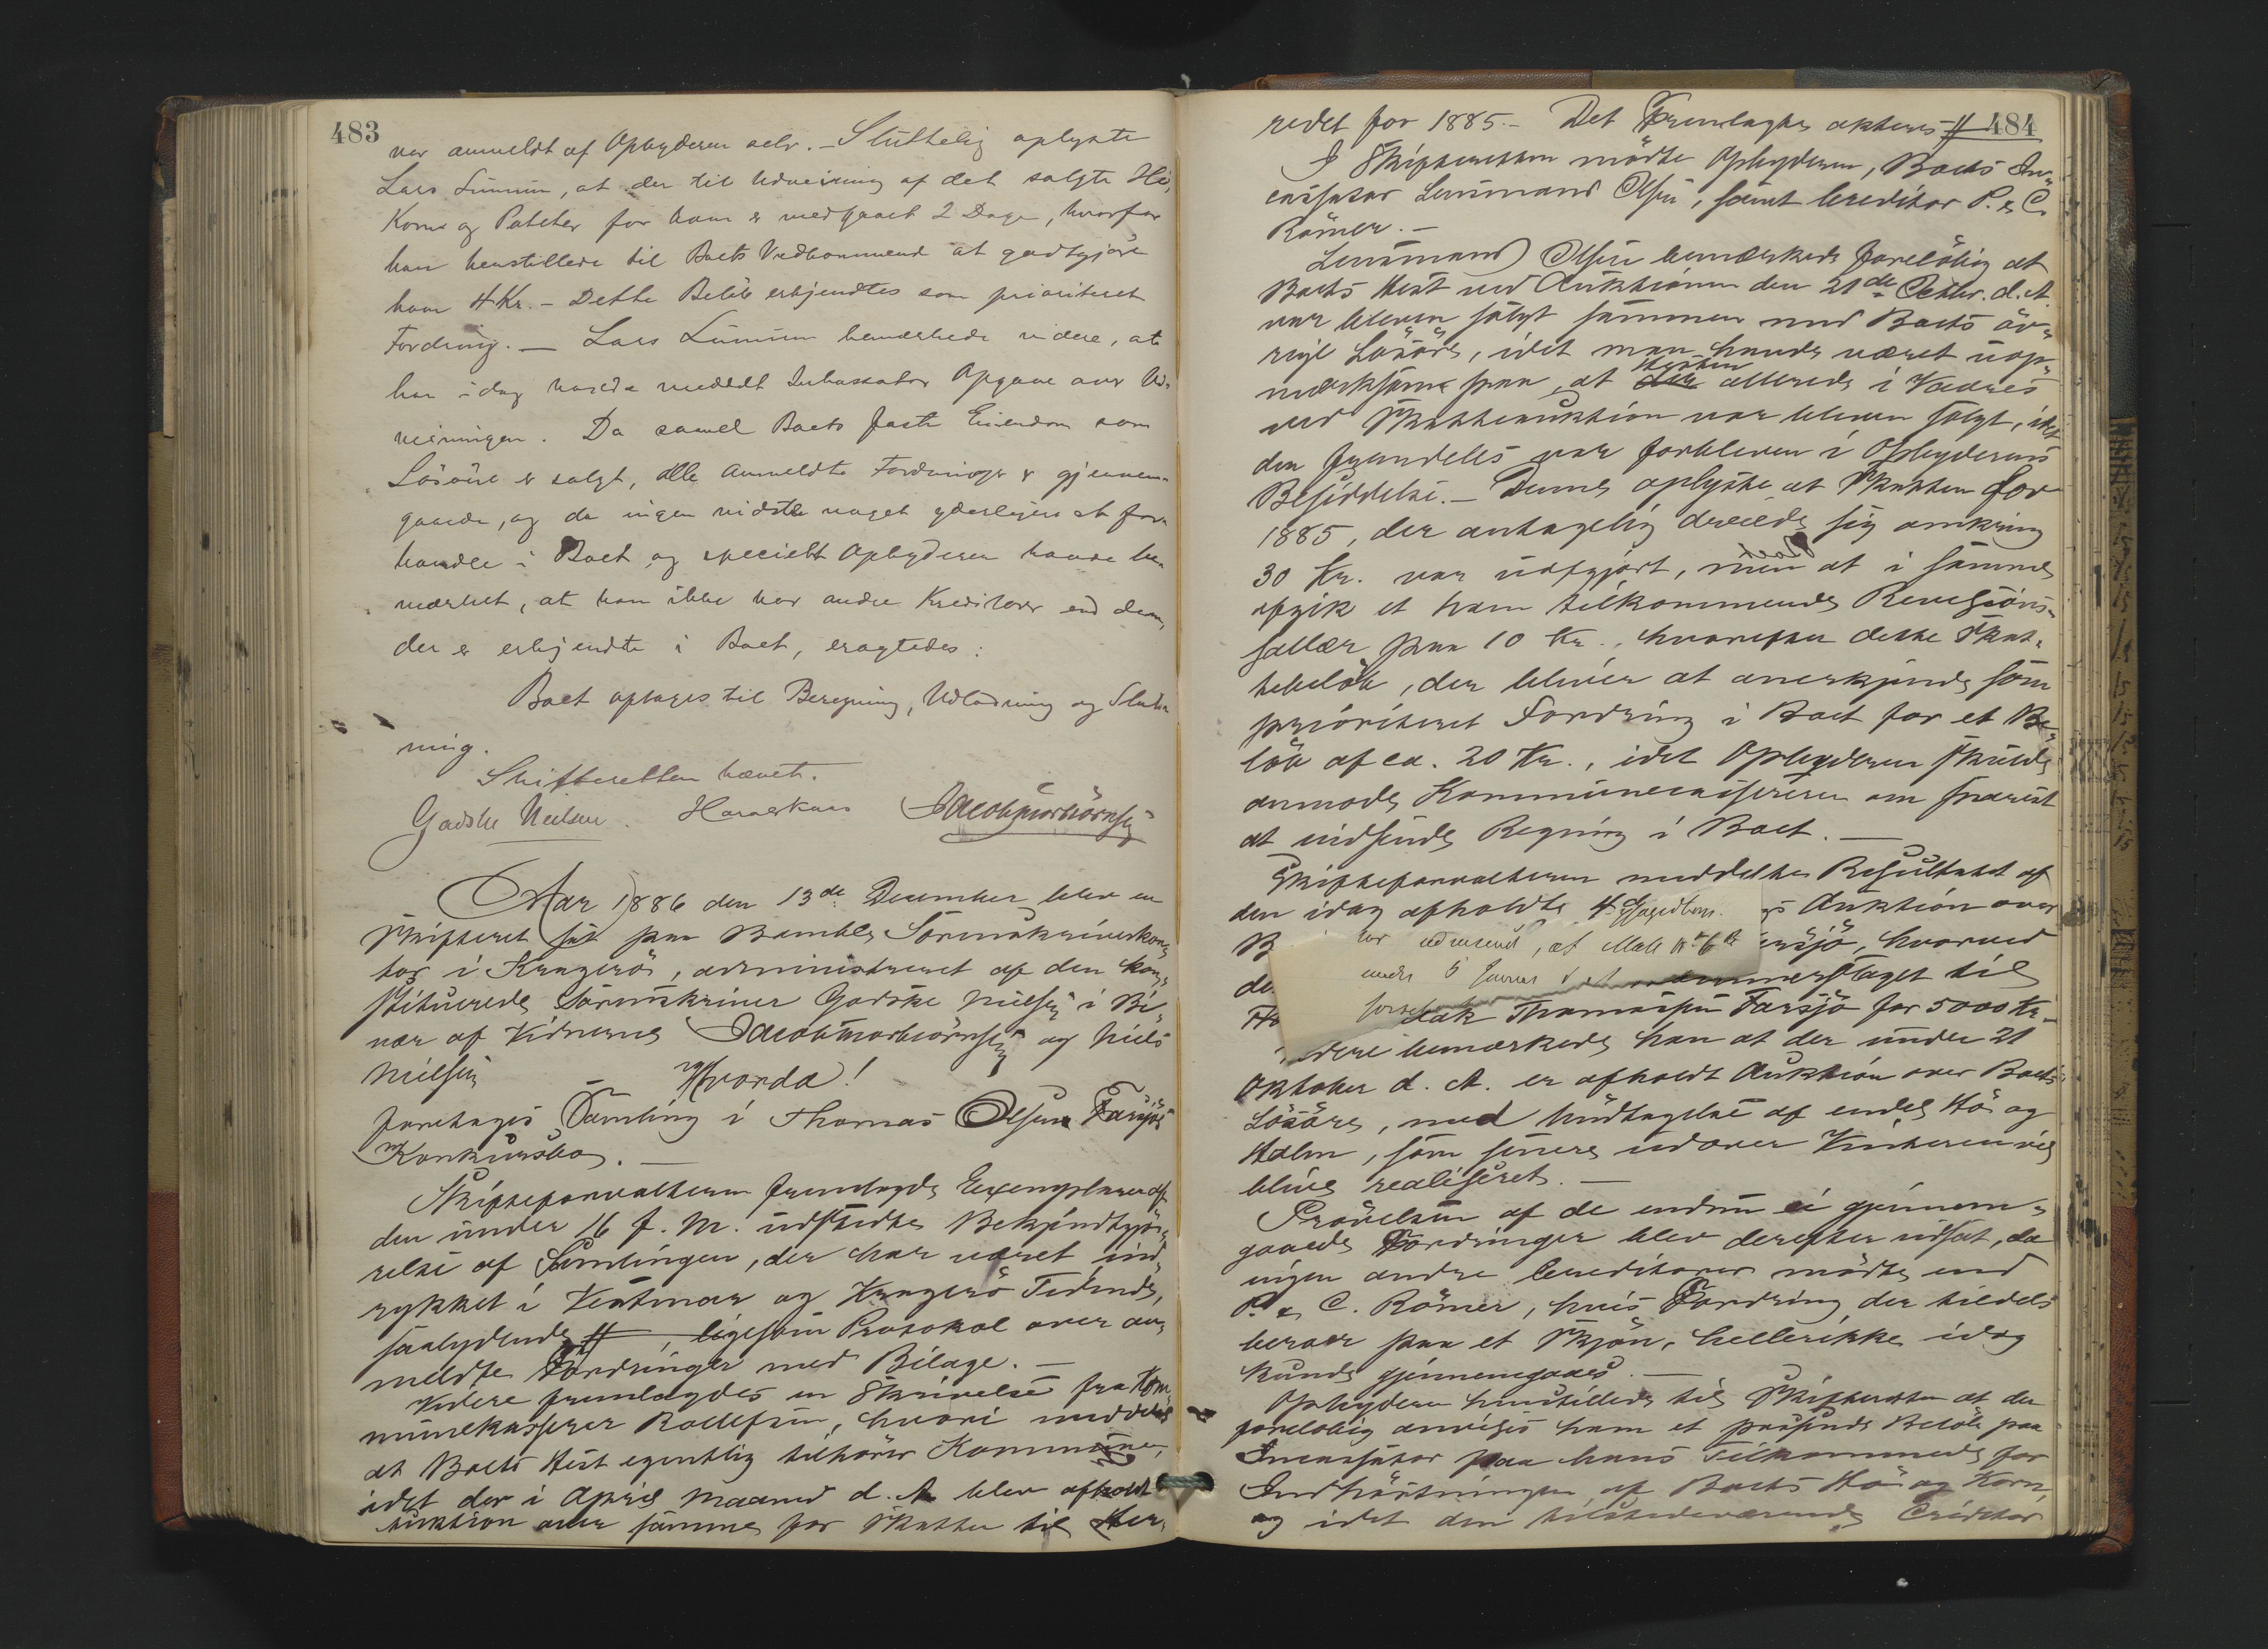 483
var anmeldt af Opbyderen selv. - Sluttelig oplyste
Lars Lunum, at der til Udveining af det solgte Hø,
Korn og Poteter for ham er medgaaet 2 Dage, hvorfor
han henstillede til Boets Vedkommende at godtgjøre
ham 4 Kr. - Dette Beløb erkjendtes som prioriteret
Fordring. - Lars Lunum bemærkede videre, at
han idag havde meddelt Inkassator Opgave over Ud-
veiningen. Da saavel Boets faste Eiendom som
Løsøre er solgt, alle anmeldte Fordringer er gjennem-
gaaede, og da ingen vidste noget yderligere at for-
handle i Boet og specielt Opbyderen havde be-
mærket, at han ikke har andre Kreditorer end dem,
der er erkjendte i Boet, eragtedes:
Boet optages til Beregning, Udlodning og Slut-
ning.
Skifteretten hævet.
Godske Nielsen. Jacob Thorbiørnsen
Aar 1886 den 13de December blev en
Skifteret sat paa Bamble Sorenskriverkon-
tor i Kragerø, administreret af den kon-
stituerede Sorenskriver Godske Nielsen i Bi-
vær af Vidnerne Jacob Thorbiørnsen og Niels
Nielsen
Hvorda!
foretages Samling i Thomas Olsen Farsjøs
Konkursbo. -
Skifteforvalteren fremlagde Exemplarer af
den under 16 f. M. udstedte Bekjendtgjø-
relse af Samlingen, der har været ind-
rykket i Vestmar og Kragerø Tidende,
saalydende #, ligesom Protokol over an-
meldte Fordringer med Bilage. -
Videre fremlagdes en Skrivelse fra Kom-
munekasserer Rollefsen, hvori meddeles
at Boets Hest egentlig tilhører Kommunen,
idet der i April Maaned d. A. blev afholdt
Auktion over samme for Skatter til Her-
484
redet for 1885. - Det Fremlagte akteres #
I Skifteretten mødte Opbyderen, Boets In-
cassator Lensmand Olsen, samt Creditor P. & C.
Römer. -
Lensmand Olsen bemærkede foreløbig at
Boets Hest ved Auktionen den 21de Octbr. d. A.
var bleven solgt sammen med Boets øv-
rige Løsøre, idet man havde været uop-
mærksom paa, at Hesten allerede i Vaares
ved Skatteauktion var bleven solgt, idet
den fremdeles var forbleven i Opbyderens
Besiddelse. - Denne oplyste at Skatten for
1885, der antagelig dreiede sig omkring
30 Kr. var uopgjort, men at i samme
afgik et ham tilkommende Revisions-
sallær paa 10 Kr., hvorefter dette Skat-
tebeløb, der bliver at anerkjende som
prioriteret Fordring i Boet for et Be-
løb af ca. 20 Kr., idet Opbyderen skulde
anmode Kommunecassereren om snarest
at indsende Regning i Boet. -
Skifteforvalteren meddelte Resultatet af
den idag afholdte 4de Auktion over
sjø, hvorved
de
Thomassen Farsjø for 5000 Kr. -
Videre bemærkede han at der under 21
Oktober d. A. er afholdt Auktion over Boets
Løsøre, med Undtagelse af endel Hø og
Halm, som senere udover Vinteren vil
blive realiseret. -
Prøvelsen af de endnu ei gjennem-
gaaede Fordringer blev derefter udsat, da
ingen andre Creditorer mødte end
P. & C. Römer, hvis Fordring der tildels
beroer paa et Skjøn, hellerikke idag
kunde gjennemgaaes. -
Opbyderen henstillede til Skifteretten at der
foreløbig anvises ham et passende Beløb paa
Incassator paa hans Tilkommende for
Indhøstningen af Boets Hø og Korn,
og idet den tilstedeværende Creditor